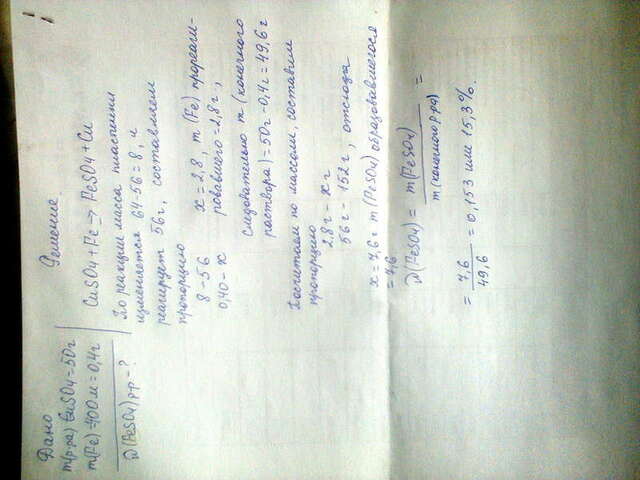 Дано
m(р-ра) CuSO4 = 50г
m(Fe) = 400 м = 0,4г
ω(FeSO4) р-р - ?
Решение.
CuSO4 + Fe → FeSO4 + Cu
По реакции масса пластинки
изменяется 64-56 = 8, и
реагирует 56г, составляем
пропорцию
8 - 56
0,40 - x
x = 2,8, m (Fe) прореаги-
ровавшего = 2,8г,
следовательно m (конечного
раствора) = 50г - 0,4г = 49,6г
Посчитаем по массам, составим
пропорцию
2,8г - xг
56г - 152г, отсюда
x = 7,6г m (FeSO4) образовавшегося
= 7,6
ω(FeSO4) = m(FeSO4) / m (конечного р-ра) =
= 7,6 / 49,6 = 0,153 или 15,3%.